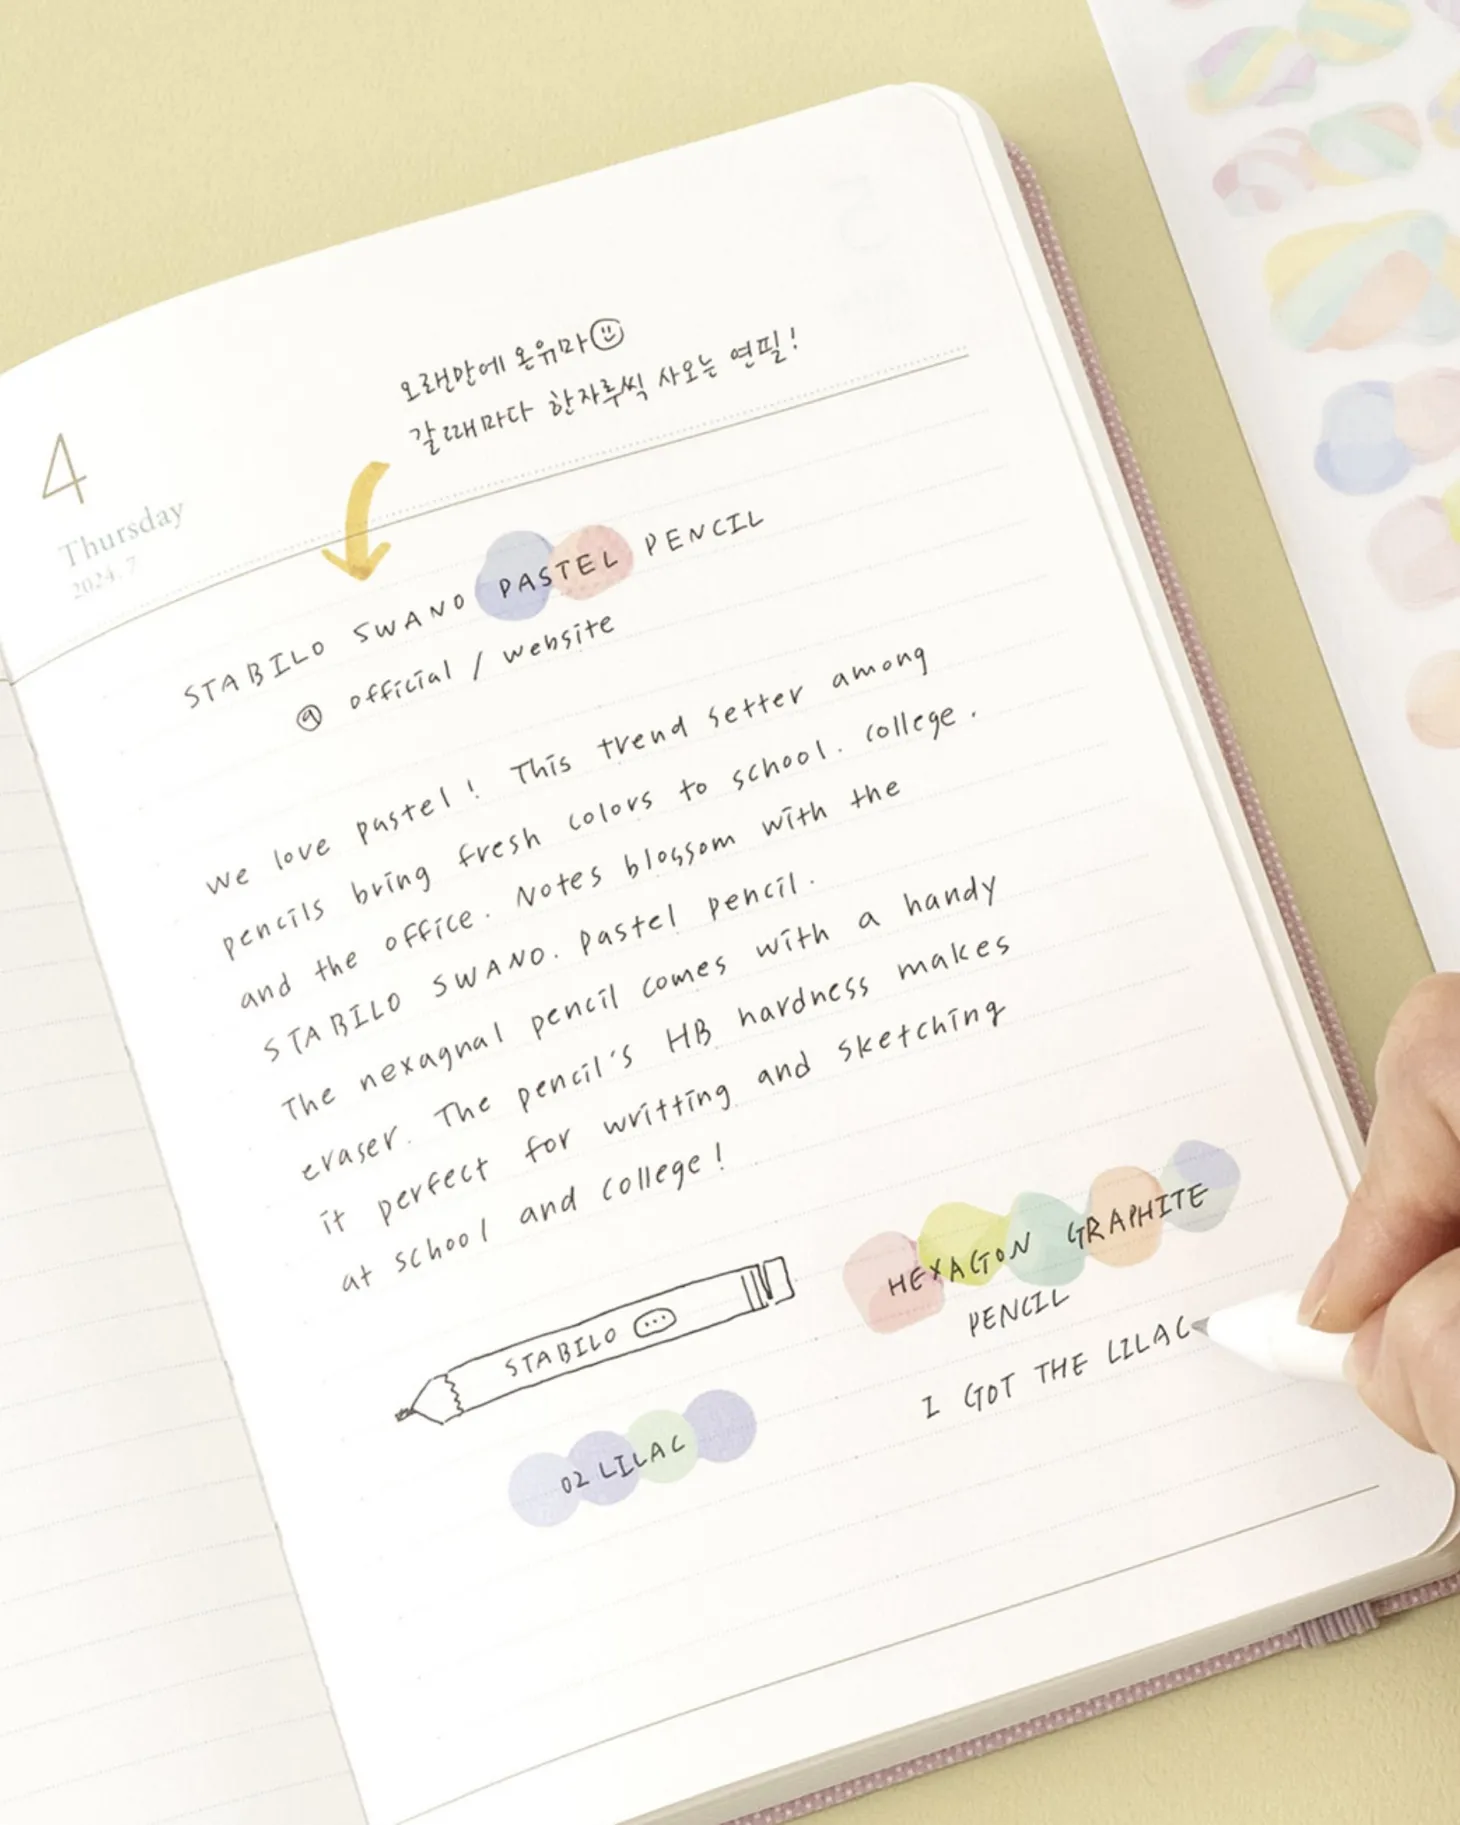 오랜만에 온유마
갈때마다 한자루씩 사오는 연필!
4
Thursday
2024. 7
STABILO SWANO PASTEL PENCIL
@ official / website
We love pastel! This trend setter among
pencils bring fresh colors to school. college.
and the office. Notes blossom with the
STABILO SWANO. pastel pencil.
The nexagnal pencil comes with a handy
eraser. The pencil's HB hardness makes
it perfect for writting and sketching
at school and college!
STABILO
02 LILAC
HEXAGON GRAPHITE
PENCIL
I GOT THE LILAC